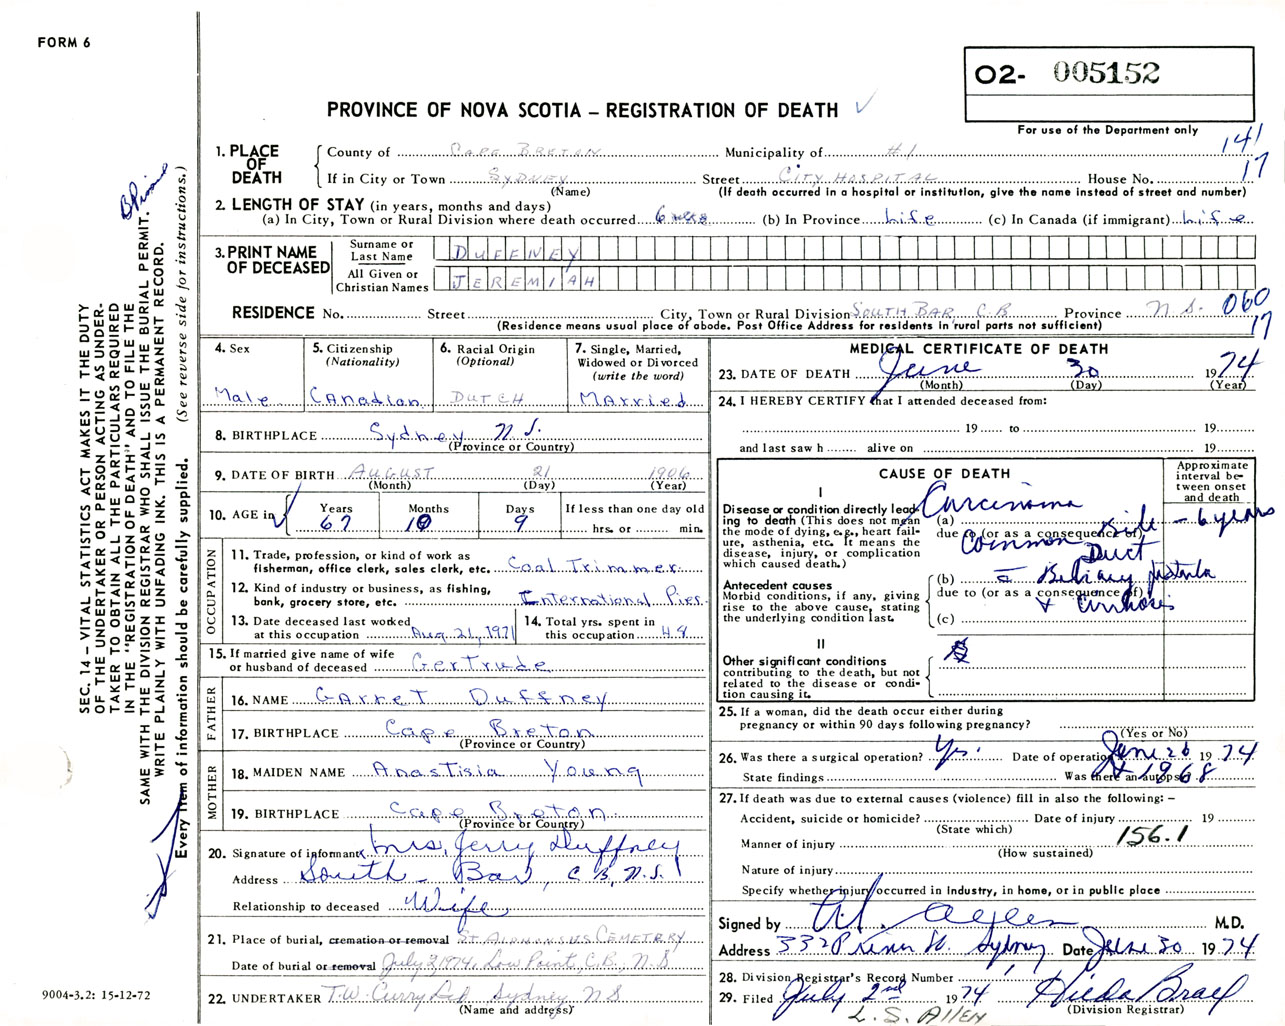 FORM 6
O2- 005152
PROVINCE OF NOVA SCOTIA – REGISTRATION OF DEATH
For use of the Department only
141
17
1. PLACE OF DEATH
County of CAPE BRETON Municipality of #1
If in City or Town SYDNEY Street CITY HOSPITAL House No.
(Name) (If death occurred in a hospital or institution, give the name instead of street and number)
2. LENGTH OF STAY (in years, months and days)
(a) In City, Town or Rural Division where death occurred 6 (b) In Province Life (c) In Canada (if immigrant) Life
3. PRINT NAME OF DECEASED
Surname or Last Name DUFFNEY
All Given or Christian Names JEREMIAH
RESIDENCE No. Street City, Town or Rural Division SOUTH BAR C.B Province N.S. 060
17
(Residence means usual place of abode. Post Office Address for residents in rural parts not sufficient)
4. Sex
Male
5. Citizenship
(Nationality)
Canadian
6. Racial Origin
(Optional)
DUTCH
7. Single, Married,
Widowed or Divorced
(write the word)
Married
8. BIRTHPLACE Sydney N.S.
(Province or Country)
9. DATE OF BIRTH AUGUST 21 1906
(Month) (Day) (Year)
10. AGE in
Years Months Days If less than one day old
67 10 9 hrs. or min.
OCCUPATION
11. Trade, profession, or kind of work as
fisherman, office clerk, sales clerk, etc. Coal Trimmer
12. Kind of industry or business, as fishing,
bank, grocery store, etc. International Pier
13. Date deceased last worked
at this occupation Aug. 21, 1971
14. Total yrs. spent in
this occupation 48
15. If married give name of wife
or husband of deceased Gertrude
FATHER
16. NAME Garret Duffney
17. BIRTHPLACE Cape Breton
(Province or Country)
MOTHER
18. MAIDEN NAME Anastisia Young
19. BIRTHPLACE Cape Breton
(Province or Country)
20. Signature of informant x Mrs. Jerry Duffney
Address South Bar, C.B, N.S.
Relationship to deceased Wife
21. Place of burial, cremation or removal St. Alphonsus Cemetery
Date of burial or removal July 2, 1974, Low Point, C.B., N.S
22. UNDERTAKER T.W. Curry Ltd Sydney NS
(Name and address)
MEDICAL CERTIFICATE OF DEATH
23. DATE OF DEATH June 30 1974
(Month) (Day) (Year)
24. I HEREBY CERTIFY that I attended deceased from:
19 to 19
and last saw h alive on 19
CAUSE OF DEATH
Approximate interval between onset and death
I
Disease or condition directly leading to death (This does not mean the mode of dying, e.g., heart failure, asthenia, etc. It means the disease, injury, or complication which caused death.)
(a) Carcinoma
due to (or as a consequence of) Common Bile – 6 years
Duct
Antecedent causes
Morbid conditions, if any, giving rise to the above cause, stating the underlying condition last.
(b) Biliary fistula
due to (or as a consequence of)
+ Cirrhosis
(c)
II
Other significant conditions
contributing to the death, but not related to the disease or condition causing it.
25. If a woman, did the death occur either during
pregnancy or within 90 days following pregnancy?
(Yes or No)
26. Was there a surgical operation? Yes. Date of operation June 26 1974
& 1968
State findings Was there an autopsy?
27. If death was due to external causes (violence) fill in also the following: –
Accident, suicide or homicide? Date of injury 19
(State which)
156.1
Manner of injury
(How sustained)
Nature of injury
Specify whether injury occurred in industry, in home, or in public place
Signed by M.D.
Address 332 Prince St. Sydney Date June 30 1974
28. Division Registrar's Record Number
29. Filed July 2nd 1974 Hilda
(Division Registrar)
L.S. Allen
SEC. 14 – VITAL STATISTICS ACT MAKES IT THE DUTY
OF THE UNDERTAKER OR PERSON ACTING AS UNDER-
TAKER TO OBTAIN ALL THE PARTICULARS REQUIRED
IN THE "REGISTRATION OF DEATH" AND TO FILE THE
SAME WITH THE DIVISION REGISTRAR WHO SHALL ISSUE THE BURIAL PERMIT.
WRITE PLAINLY WITH UNFADING INK. THIS IS A PERMANENT RECORD.
Every item of information should be carefully supplied. (See reverse side for instructions.)
9004-3.2: 15-12-72